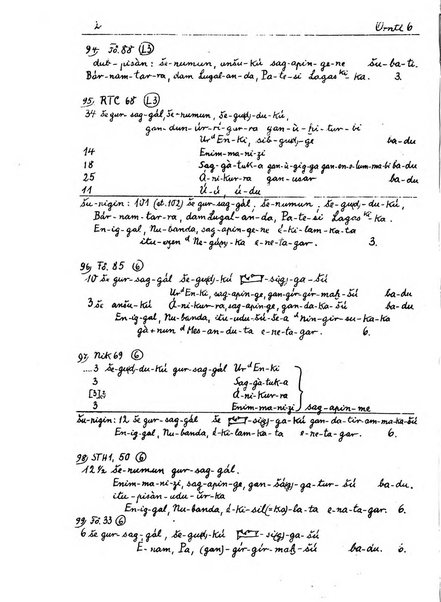 2 Orntl 6
94, Fö. 88 (L3)
dub-pisàn: še-numun, unšu-kú sag-apin-ge-ne šu-ba-ti.
Bár-nam-tar-ra, dam Lugal-an-da, Pa-te-si Lagaš ki-ka. 3.
95, RTC 68 (L3)
34 še gur sag-gál, še-numun, še-gud-du-kú,
gan-dun-úr-ri-gur-ra gan-ù-
Ur d En-ki, sib-gud-ge ba-du
14 Enim-ma-ni-zi
18 Sag-gà-tuk-a ba-du
25 Á-ni-kur-ra gan-usar ba-du
11 Ú-ú, ú-du
Šu-nigin: 101 (et.102) še gur-sag-gál, še-numun, še-gud-du-kú,
Bár-nam-tar-ra, dam Lugal-an-da, Pa-te-si Lagaš ki-ka.
En-ig-gal, Nu-banda, sag-apin-ge-ne é-ki-lam-ka-ta
itu-ezen d Ne-gún-ka e-ne-ta-gar. 3.
96, Fö. 85 (6)
10 še gur-sag-gál še-gud-kú -sig-ga-šú
Ur d En-ki, sag-apin-ge, gan-gír-gír-maḫ-šú ba-du
3 še anšu-kú Á-ni-kur-ra, sag-apin-ge, gan-da-sal-šú ba-du
En-ig-gal, Nu-banda, itu-udu-šú-še-a d Nin-gír-su-ka-ka
gà+nun d Mes-an-du-ta e-ne-ta-gar. 6.
97, Nik 69 (6)
....3 še-gud-du-kú gur-sag-gál Ur d En-ki
3 Sag-gà-tuk-a
[3].3 Á-ni-kur-ra
3 Enim-ma-ni-zi sag-apin-me
Šu-nigin: 12 še gur-sag-gál še -si-ga-kú gan-da-tir-am-ma-ka-šú
En-ig-gal, Nu-banda, é-ki-lam-ka-ta e-ne-ta-gar. 6.
98, STH 1, 50 (6)
12 ½ še-numun gur-sag-gál.
Enim-ma-ni-zi, sag-apin-ge, gan-šág-ga-tur-šú ba-du.
itu-pisàn-udu-úr-ka
En-ig-gal, Nu-banda, é-ki-sil(=ko)-la-ta e-na-ta-gar. 6.
99, Fö. 33 (6)
6 še gur-sag-gál, še-gud-kú -si-ga-šú
É-nam, Pa, (gan)-gír-gír-maḫ-šú ba-du. 6.